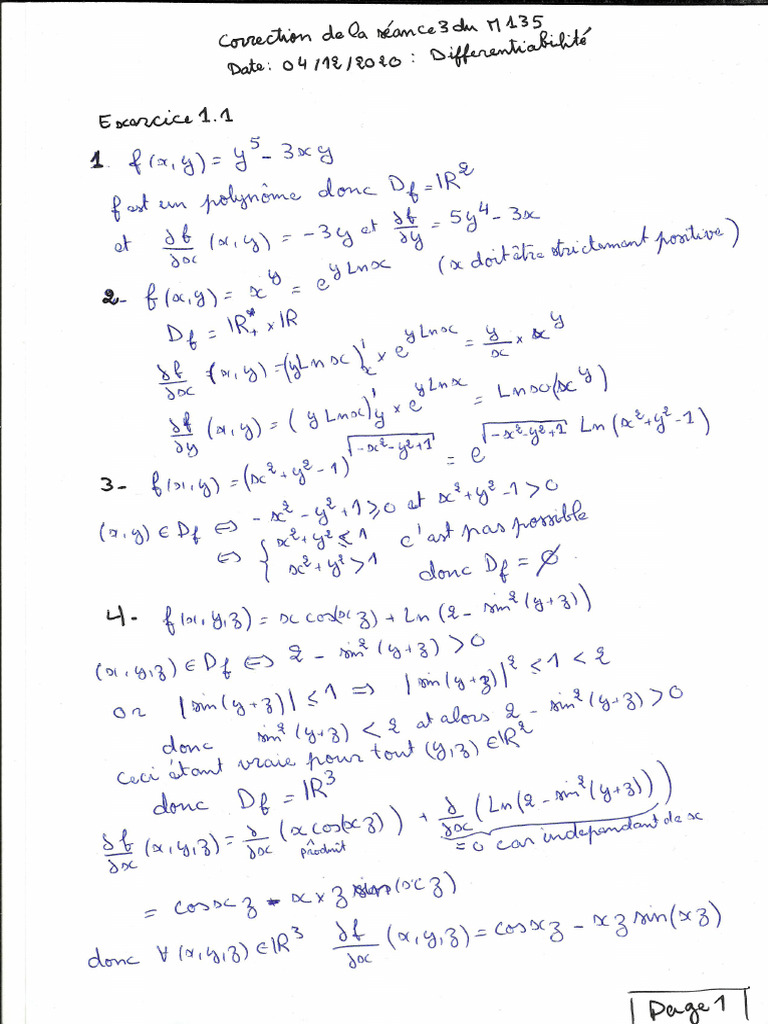 Correction de la séance 3 du M 135
Date: 04/12/2020 : Differentiabilité
Exercice 1.1
1. f(x,y) = y⁵ - 3xy
f est un polynôme donc D_f = ℝ²
et ∂f/∂x (x,y) = -3y et ∂f/∂y = 5y⁴ - 3x
2- f(x,y) = x^y = e^{y Ln x} (x doit être strictement positive)
D_f = ℝ*₊ × ℝ
∂f/∂x (x,y) = (y Ln x)'_x × e^{y Ln x} = y/x × x^y
∂f/∂y (x,y) = (y Ln x)'_y × e^{y Ln x} = Ln x (x^y)
3- f(x,y) = (x²+y²-1)^{√(-x²-y²+1)} = e^{√(-x²-y²+1) Ln(x²+y²-1)}
(x,y) ∈ D_f ⇔ -x²-y²+1 ≥ 0 et x²+y²-1 > 0
⇔ { x²+y² ≤ 1
x²+y² > 1 c'est pas possible
donc D_f = ∅
4- f(x,y,z) = x cos(xz) + Ln(2 - sin²(y+z))
(x,y,z) ∈ D_f ⇔ 2 - sin²(y+z) > 0
or |sin(y+z)| ≤ 1 ⇒ |sin(y+z)|² ≤ 1 < 2
donc sin²(y+z) < 2 et alors 2 - sin²(y+z) > 0
ceci étant vraie pour tout (y,z) ∈ ℝ²
donc D_f = ℝ³
∂f/∂x (x,y,z) = ∂/∂x (x cos(xz)) + ∂/∂x (Ln(2 - sin²(y+z)))
produit
= 0 car independant de x
= cos xz - x × z sin(xz)
donc ∀(x,y,z) ∈ ℝ³ ∂f/∂x (x,y,z) = cos xz - xz sin(xz)
Page 1